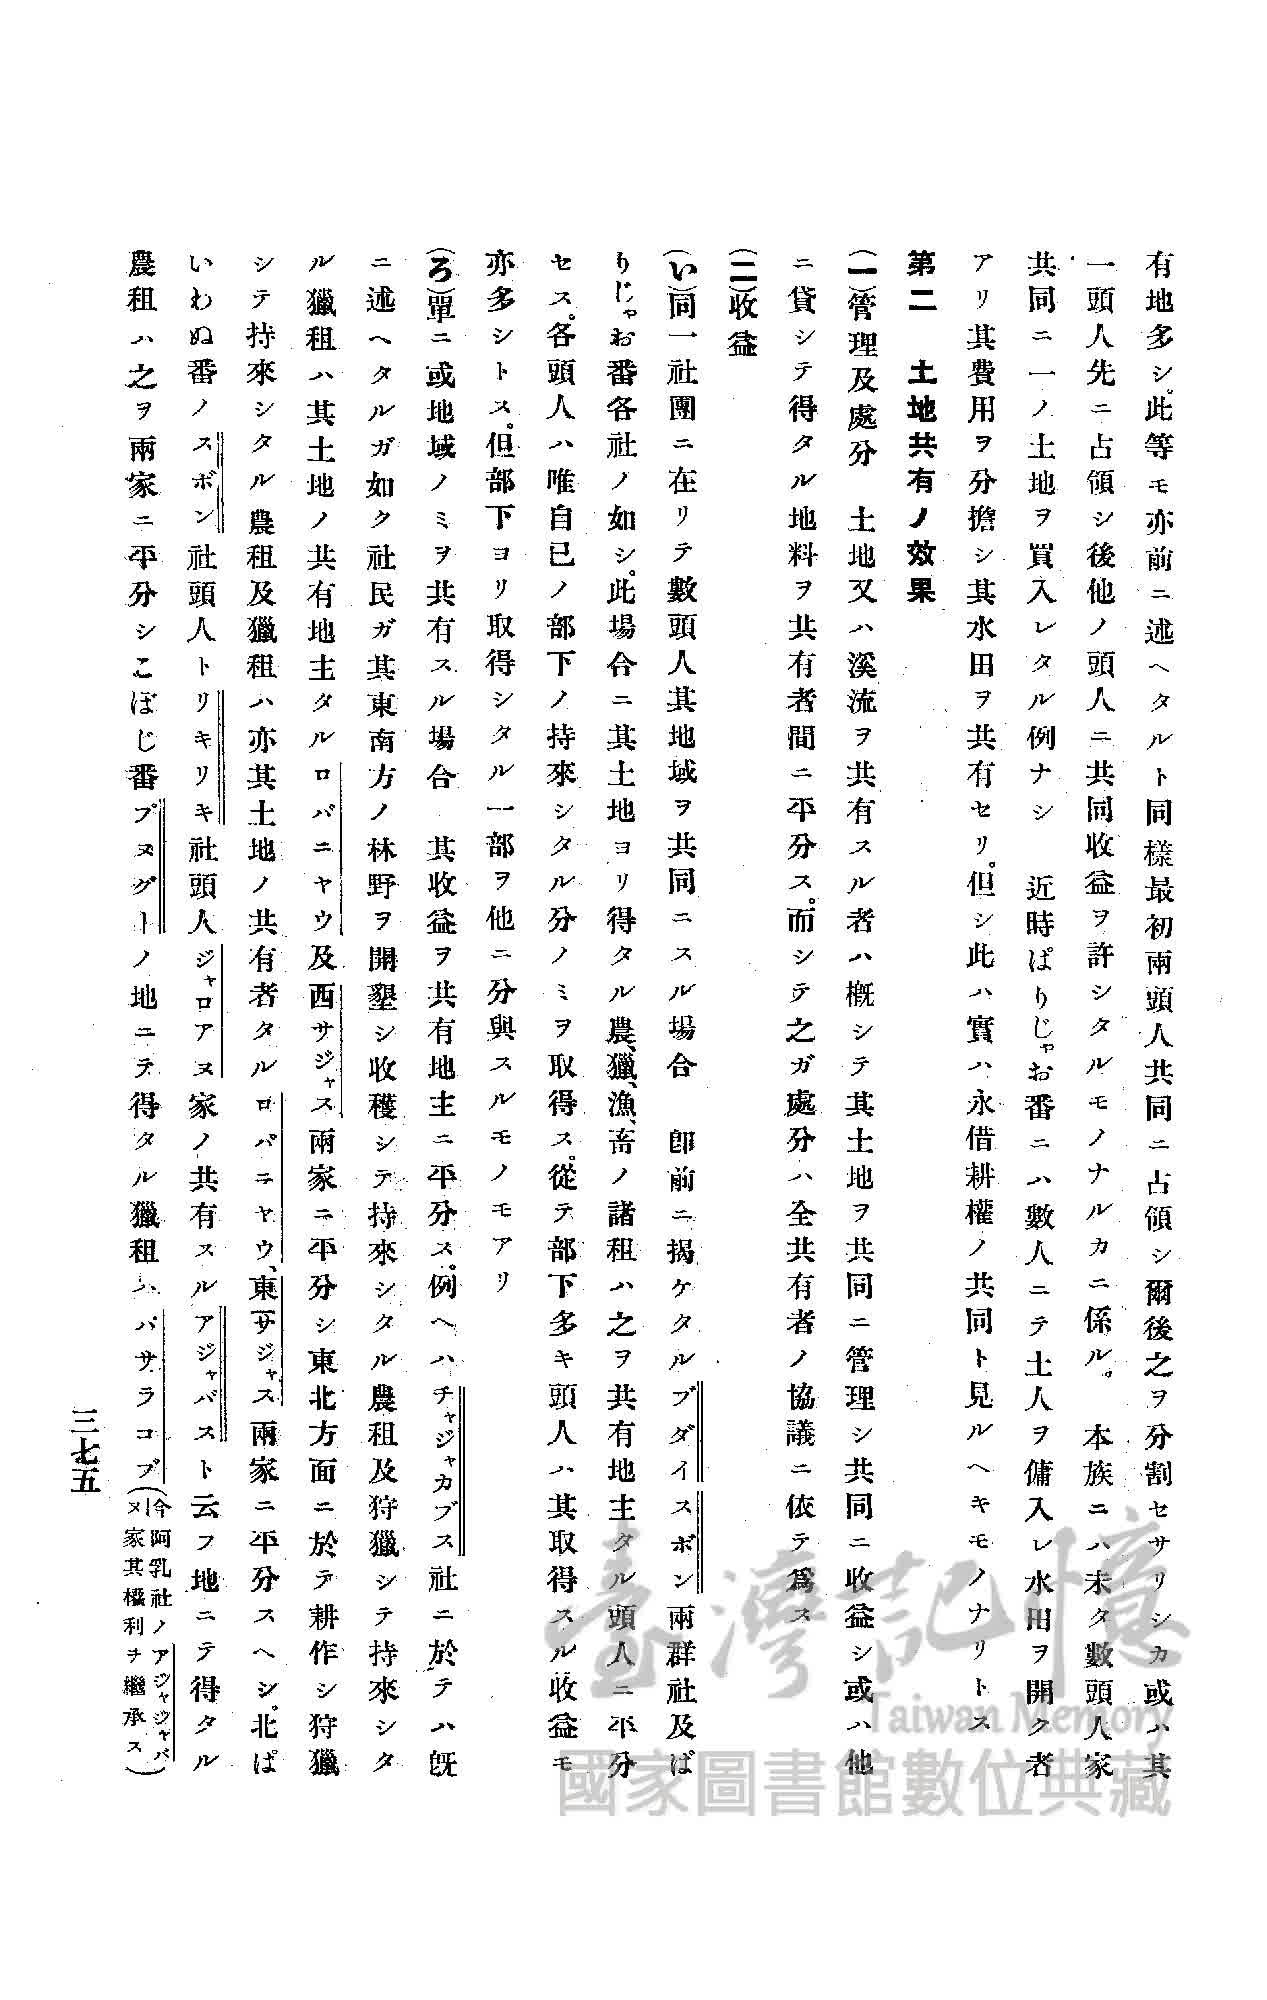 有地多シ。此等モ亦前ニ述ヘタルト同樣最初兩頭人共同ニ占領シ爾後之ヲ分割セサリシカ或ハ其
一頭人先ニ占領シ後他ノ頭人ニ共同收益ヲ許シタルモノナルカニ係ル。 本族ニハ未タ數頭人家
共同ニ一ノ土地ヲ買入レタル例ナシ 近時ぱりじゃお番ニハ數人ニテ土人ヲ傭入レ水田ヲ開ク者
アリ其費用ヲ分擔シ其水田ヲ共有セリ。但シ此ハ實ハ永借耕權ノ共同ト見ルヘキモノナリトス
第二 土地共有ノ效果
(一)管理及處分 土地又ハ溪流ヲ共有スル者ハ槪シテ其土地ヲ共同ニ管理シ共同ニ收益シ或ハ他
ニ貸シテ得タル地料ヲ共有者間ニ平分ス。而シテ之ガ處分ハ全共有者ノ協議ニ依テ爲ス
(二)收益
(い)同一社團ニ在リテ數頭人其地域ヲ共同ニスル場合 卽前ニ揭ケタルブダイスボン兩群社及ぱ
りじゃお番各社ノ如シ。此場合ニ其土地ヨリ得タル農、獵、漁、畜ノ諸租ハ之ヲ共有地主タル頭人ニ平分
セス。各頭人ハ唯自己ノ部下ノ持來シタル分ノミヲ取得ス。從テ部下多キ頭人ハ其取得スル收益モ
亦多シトス。但部下ヨリ取得シタル一部ヲ他ニ分與スルモノモアリ
(ろ)單ニ或地域ノミヲ共有スル場合 其收益ヲ共有地主ニ平分ス。例ヘハチャジャカブス社ニ於テハ旣
ニ述ヘタルガ如ク社民ガ其東南方ノ林野ヲ開墾シ收穫シテ持來シタル農租及狩獵シテ持來シタ
ル獵租ハ其土地ノ共有地主タルロバニヤウ及西サジャス兩家ニ平分シ東北方面ニ於テ耕作シ狩獵
シテ持來シタル農租及獵租ハ亦其土地ノ共有者タルロバニヤウ、東サジャス兩家ニ平分スヘシ。北ぱ
いわぬ番ノスボン社頭人トリキリキ社頭人ジャロアヌ家ノ共有スルアジャバスト云フ地ニテ得タル
農租ハ之ヲ兩家ニ平分シこぼじ番プヌグートノ地ニテ得タル獵租ハバサラコブ(今阿乳社ノアジャジャバ
ヌ家其權利ヲ繼承ス)
三七五
臺灣記憶
Taiwan Memory
國家圖書館數位典藏